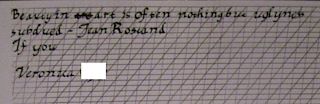 Beauty in art is often nothing but uglyness
subdued - Jean Rostand
If you
Veronica